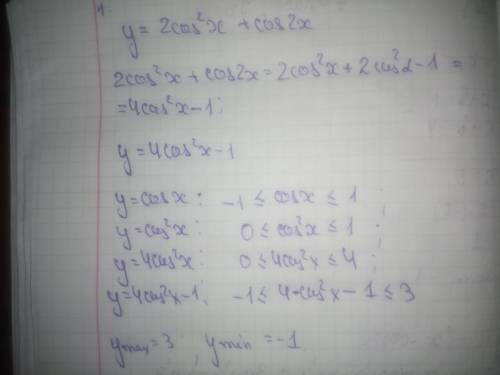 1.
y = 2cos²x + cos2x
2cos²x + cos2x = 2cos²x + 2cos²α - 1 =
= 4cos²x - 1;
y = 4cos²x - 1
y = cosx: -1 ≤ cosx ≤ 1;
y = cos²x: 0 ≤ cos²x ≤ 1;
y = 4cos²x: 0 ≤ 4cos²x ≤ 4;
y = 4cos²x - 1: -1 ≤ 4·cos²x - 1 ≤ 3
ymax = 3, ymin = -1